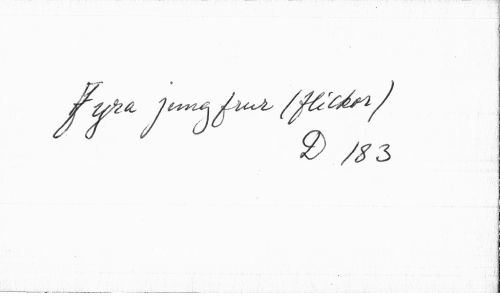 Fyra jungfrur (flickor)
D 183